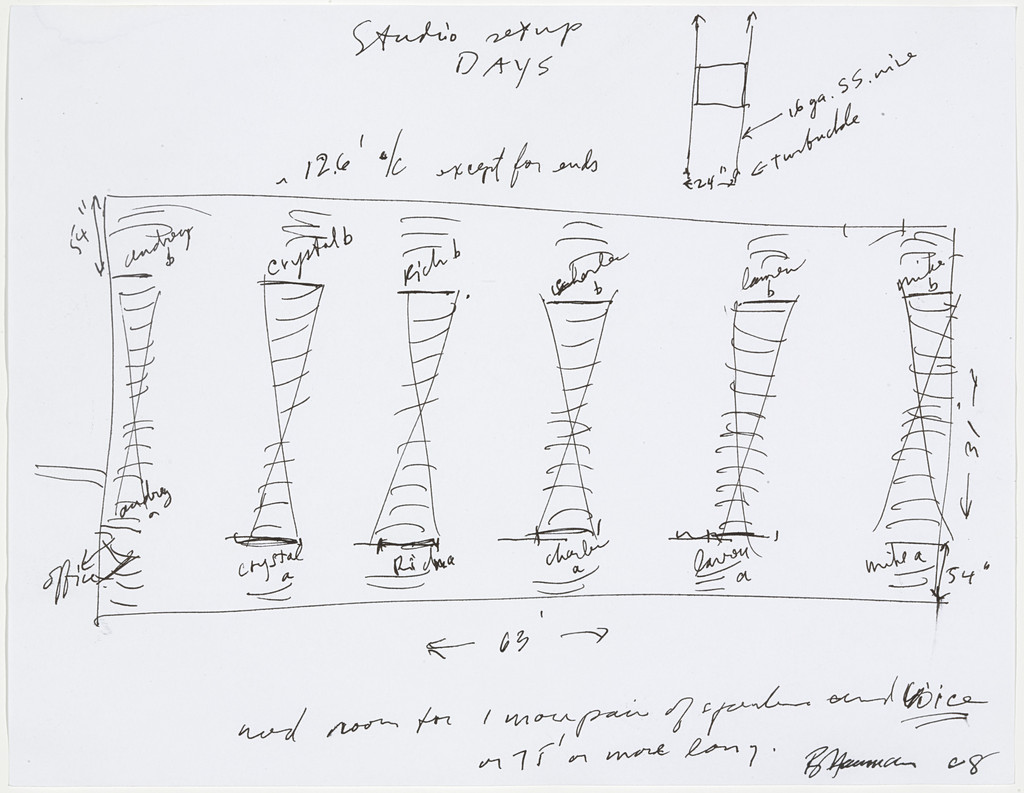 Studio setup
DAYS
16 ga. SS. wire
turnbuckle
24"
~ 12.6' o/c except for ends
54"
audrey b
crystal b
Rich b
charlie b
lauren b
mike b
31'
audrey a
office
crystal a
Rich a
charlie a
lauren a
mike a
54"
63'
need room for 1 more pair of speakers and voice
or 75' or more long.
B Nauman 08